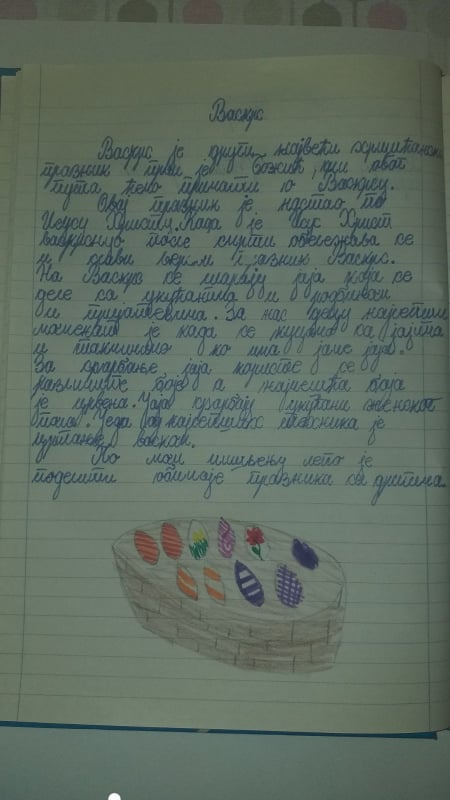 Васкрс
Васкрс је други највећи хришћански
празник први је Божић, али овог
пута ћемо причати о Васкрсу.
Овај празник је настао по
Исусу Христу. Када је Исус Христ
васкрснуо после смрти обележава се
и овај празник Васкрс.
На Васкрс се шарају јаја која се
деле са укућанима и родбином
и пријатељима. За нас децу најлепши
моменат је када се куцамо са јајима
и такмичимо ко има јаче јаје.
За фарбање јаја користе се
различите боје а најчешћа боја
је црвена. Јаја фарбају укућани женског
пола. Једа од најлепших техника је
цртање воском.
По мом мишљењу лепо је
поделити празника са другима